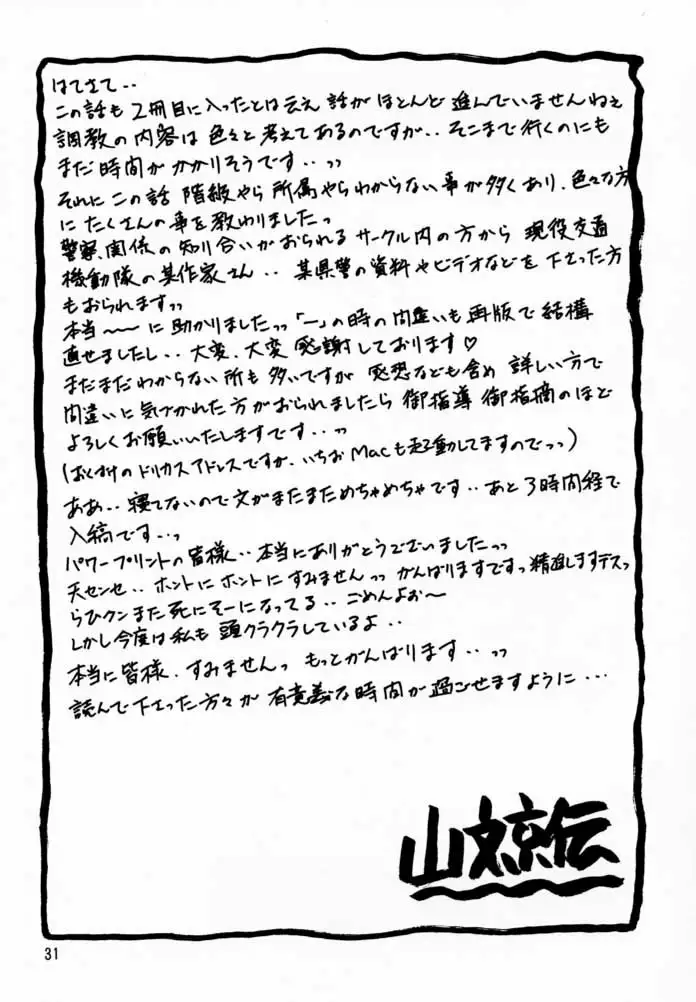 はてさて‥
この話も 2冊目に入ったとは云え 話が ほとんど 進んでいませんねぇ
調教の内容は 色々と 考えてあるのですが‥ そこまで 行くのにも
まだ 時間が かかりそうです‥っっ
それに この話 階級やら 所属やら わからない 事が 多くあり、色々な方
に たくさんの 事を 教わりましたっ
警察 関係の 知り合いが おられる サークル内の 方から 現役交通
機動隊の 某作家さん‥ 某県警の 資料や ビデオなどを 下さった方
も おられますっっ
本当〜〜に 助かりましたっっ 「一」の時の 間違いも 再版で 結構
直せましたし‥ 大変、大変 感謝しております♡
まだまだ わからない 所も 多いですが 感想なども含め 詳しい方で
間違いに 気づかれた 方が おられましたら 御指導 御指摘のほど
よろしく お願いいたしますです‥っっ
(おくづけの ドリカスアドレスですが、いちお Macも 起動してますのでっっ)
ああ‥ 寝てないので 文が またまためちゃめちゃです‥ あと 3時間程で
入稿です‥っ
パワープリントの 皆様‥ 本当に ありがとうございましたっっ
天センセ‥ ホントに ホントに すみませんっっ がんばりますですっ 精進しますデスっ
らひクン また 死にそーに なってる‥ ごめんよお〜
しかし 今度は 私も 頭クラクラしているよ‥
本当に 皆様、すみませんっ もっと がんばります‥っっ
読んで 下さった 方々が 有意義な 時間が 過ごせますように…
山文京伝
31